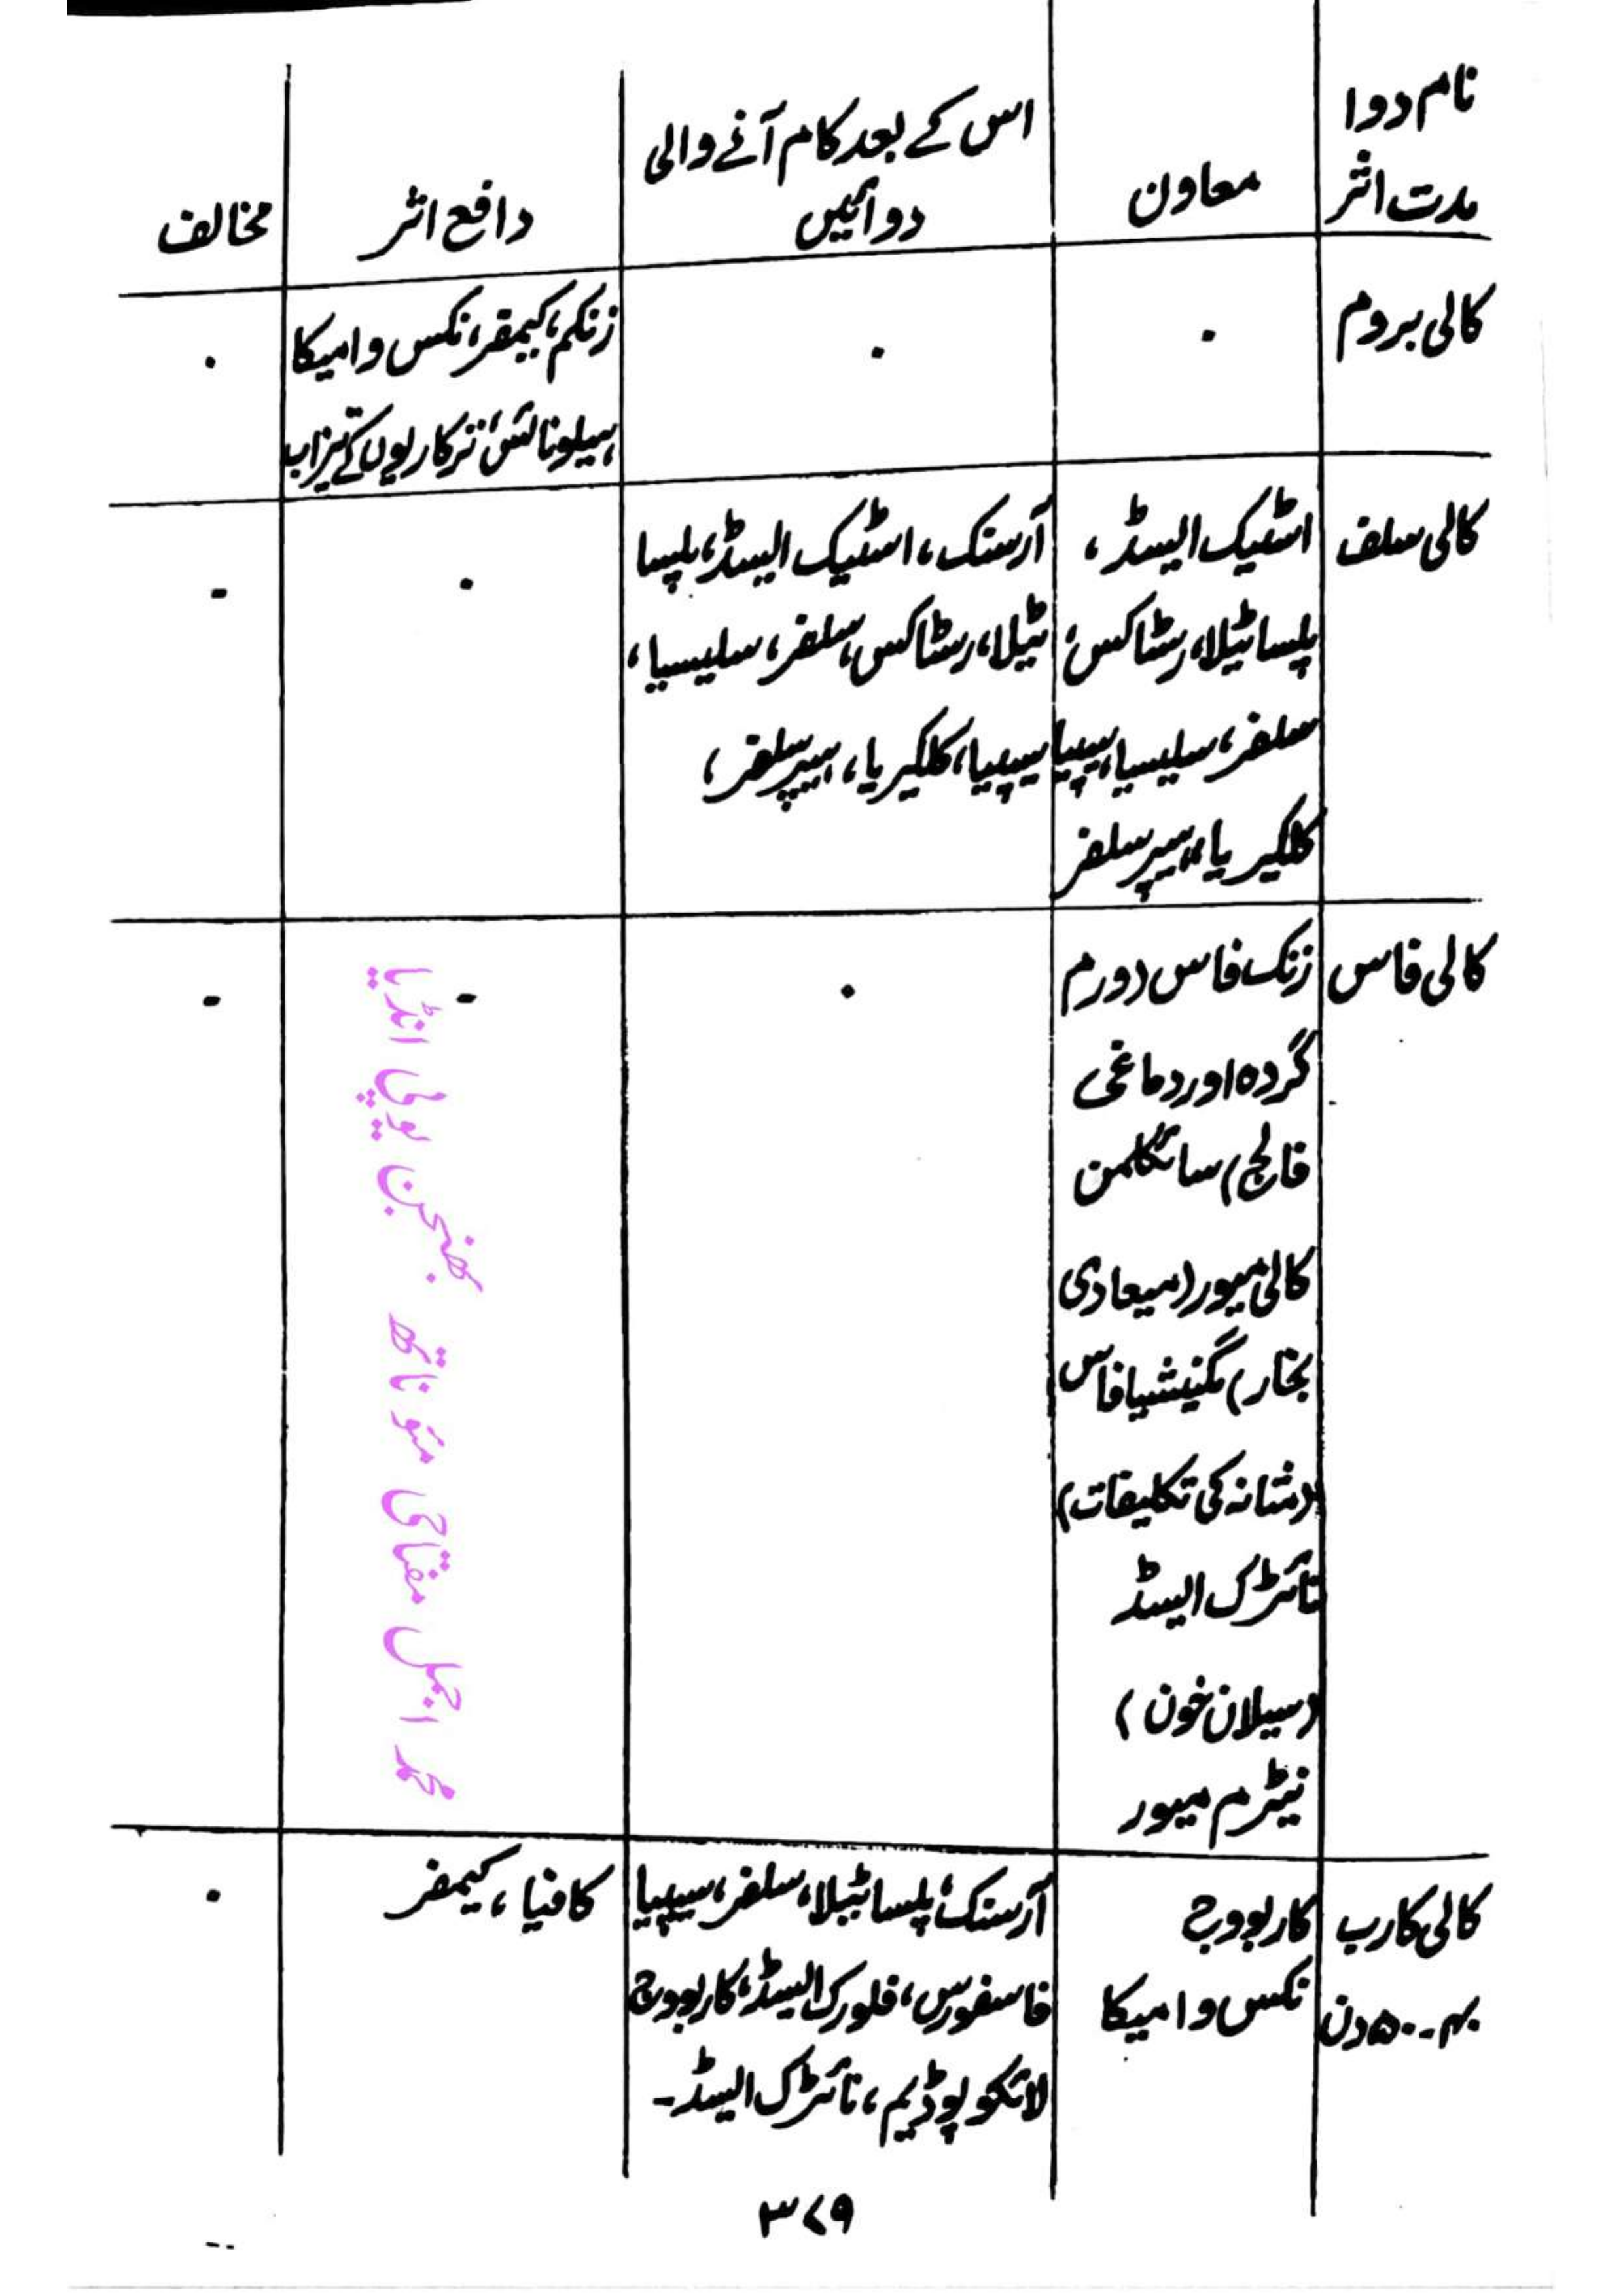 نام دوا
مدت اثر
معاون
اس کے بعد کام آنے والی
دوائیں
دافع اثر
مخالف
کالی بروم
۰
۰
زنکم، کیمفر، نکس وامیکا
ہیلونائس، ترکاریوں کے تیزاب
۰
کالی سلف
اسٹیک ایسڈ،
پلساٹیلا، رسٹاکس،
سلفر، سلیسیا، سیپیا
کلکیریا، ہیپر سلفر
آرسنک، اسٹیک ایسڈ، پلسا
ٹیلا، رسٹاکس، سلفر، سلیسیا،
سیپیا، کلکیریا، ہیپر سلفر،
۰
-
کالی فاس
زنک فاس (ورم
گردہ اور دماغی
فالج) سائکلمن
کالی میور (میعادی
بخار) مگنیشیا فاس
(مثانہ کی تکلیفات)
نائٹرک ایسڈ
(سیلان خون)
نیٹرم میور
۰
-
-
محمد اجمل مفتاحی مئو ناتھ بھنجن یوپی انڈیا
کالی کارب
۴۰-۵۰ دن
کاربوویج
نکس وامیکا
آرسنک، پلساٹیلا، سلفر، سیپیا
فاسفورس، فلورک ایسڈ، کاربوویج
لائکوپوڈیم، نائٹرک ایسڈ۔
کافیا، کیمفر
۰
۳۷۹